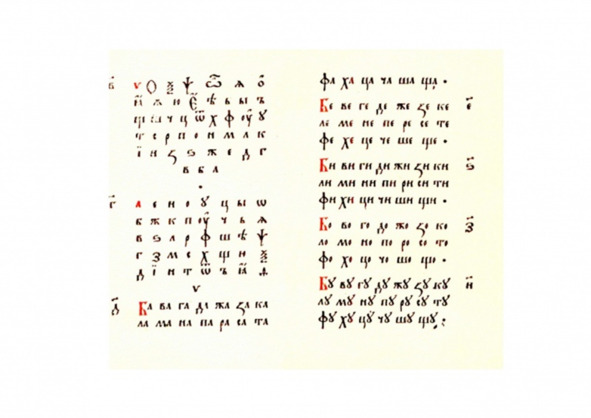 в҃ ѵ Ѻ ѯ ѱ ѿ ѧ ѻ
ꙗ ѫ ю Ѥ ѣ ь ы ъ
щ ш ч ц ѿ х ф ѹ ꙋ
т с р п о н м л к
і и ꙁ ѕ ж е д г
в б а
г҃ а е и о ꙋ ц ы ѡ
б ж к п ѹ ч ь ѧ
в ѕ л р ф ш ѣ ѱ
г ꙁ м с х щ ю ѯ
д і н т ѿ ъ ꙗ ѳ
ѵ
д҃ Ба ва га да жа ꙁа ка
ла ма на па ра са та
фа ха ца ча ша ща .
Бе ве ге де же ꙁе ке е҃
ле ме не пе ре се те
фе хе це че ше ще .
Би ви ги ди жи ꙁи ки ѕ҃
ли ми ни пи ри си ти
фи хи ци чи ши щи .
Бо во го до жо ꙁо ко ꙁ҃
ло мо но по ро со то
фо хо цо чо шо що .
Бꙋ вꙋ гꙋ дꙋ жꙋ ꙁꙋ кꙋ и҃
лꙋ мꙋ нꙋ пꙋ рꙋ сꙋ тꙋ
фꙋ хꙋ цꙋ чꙋ шꙋ щꙋ :